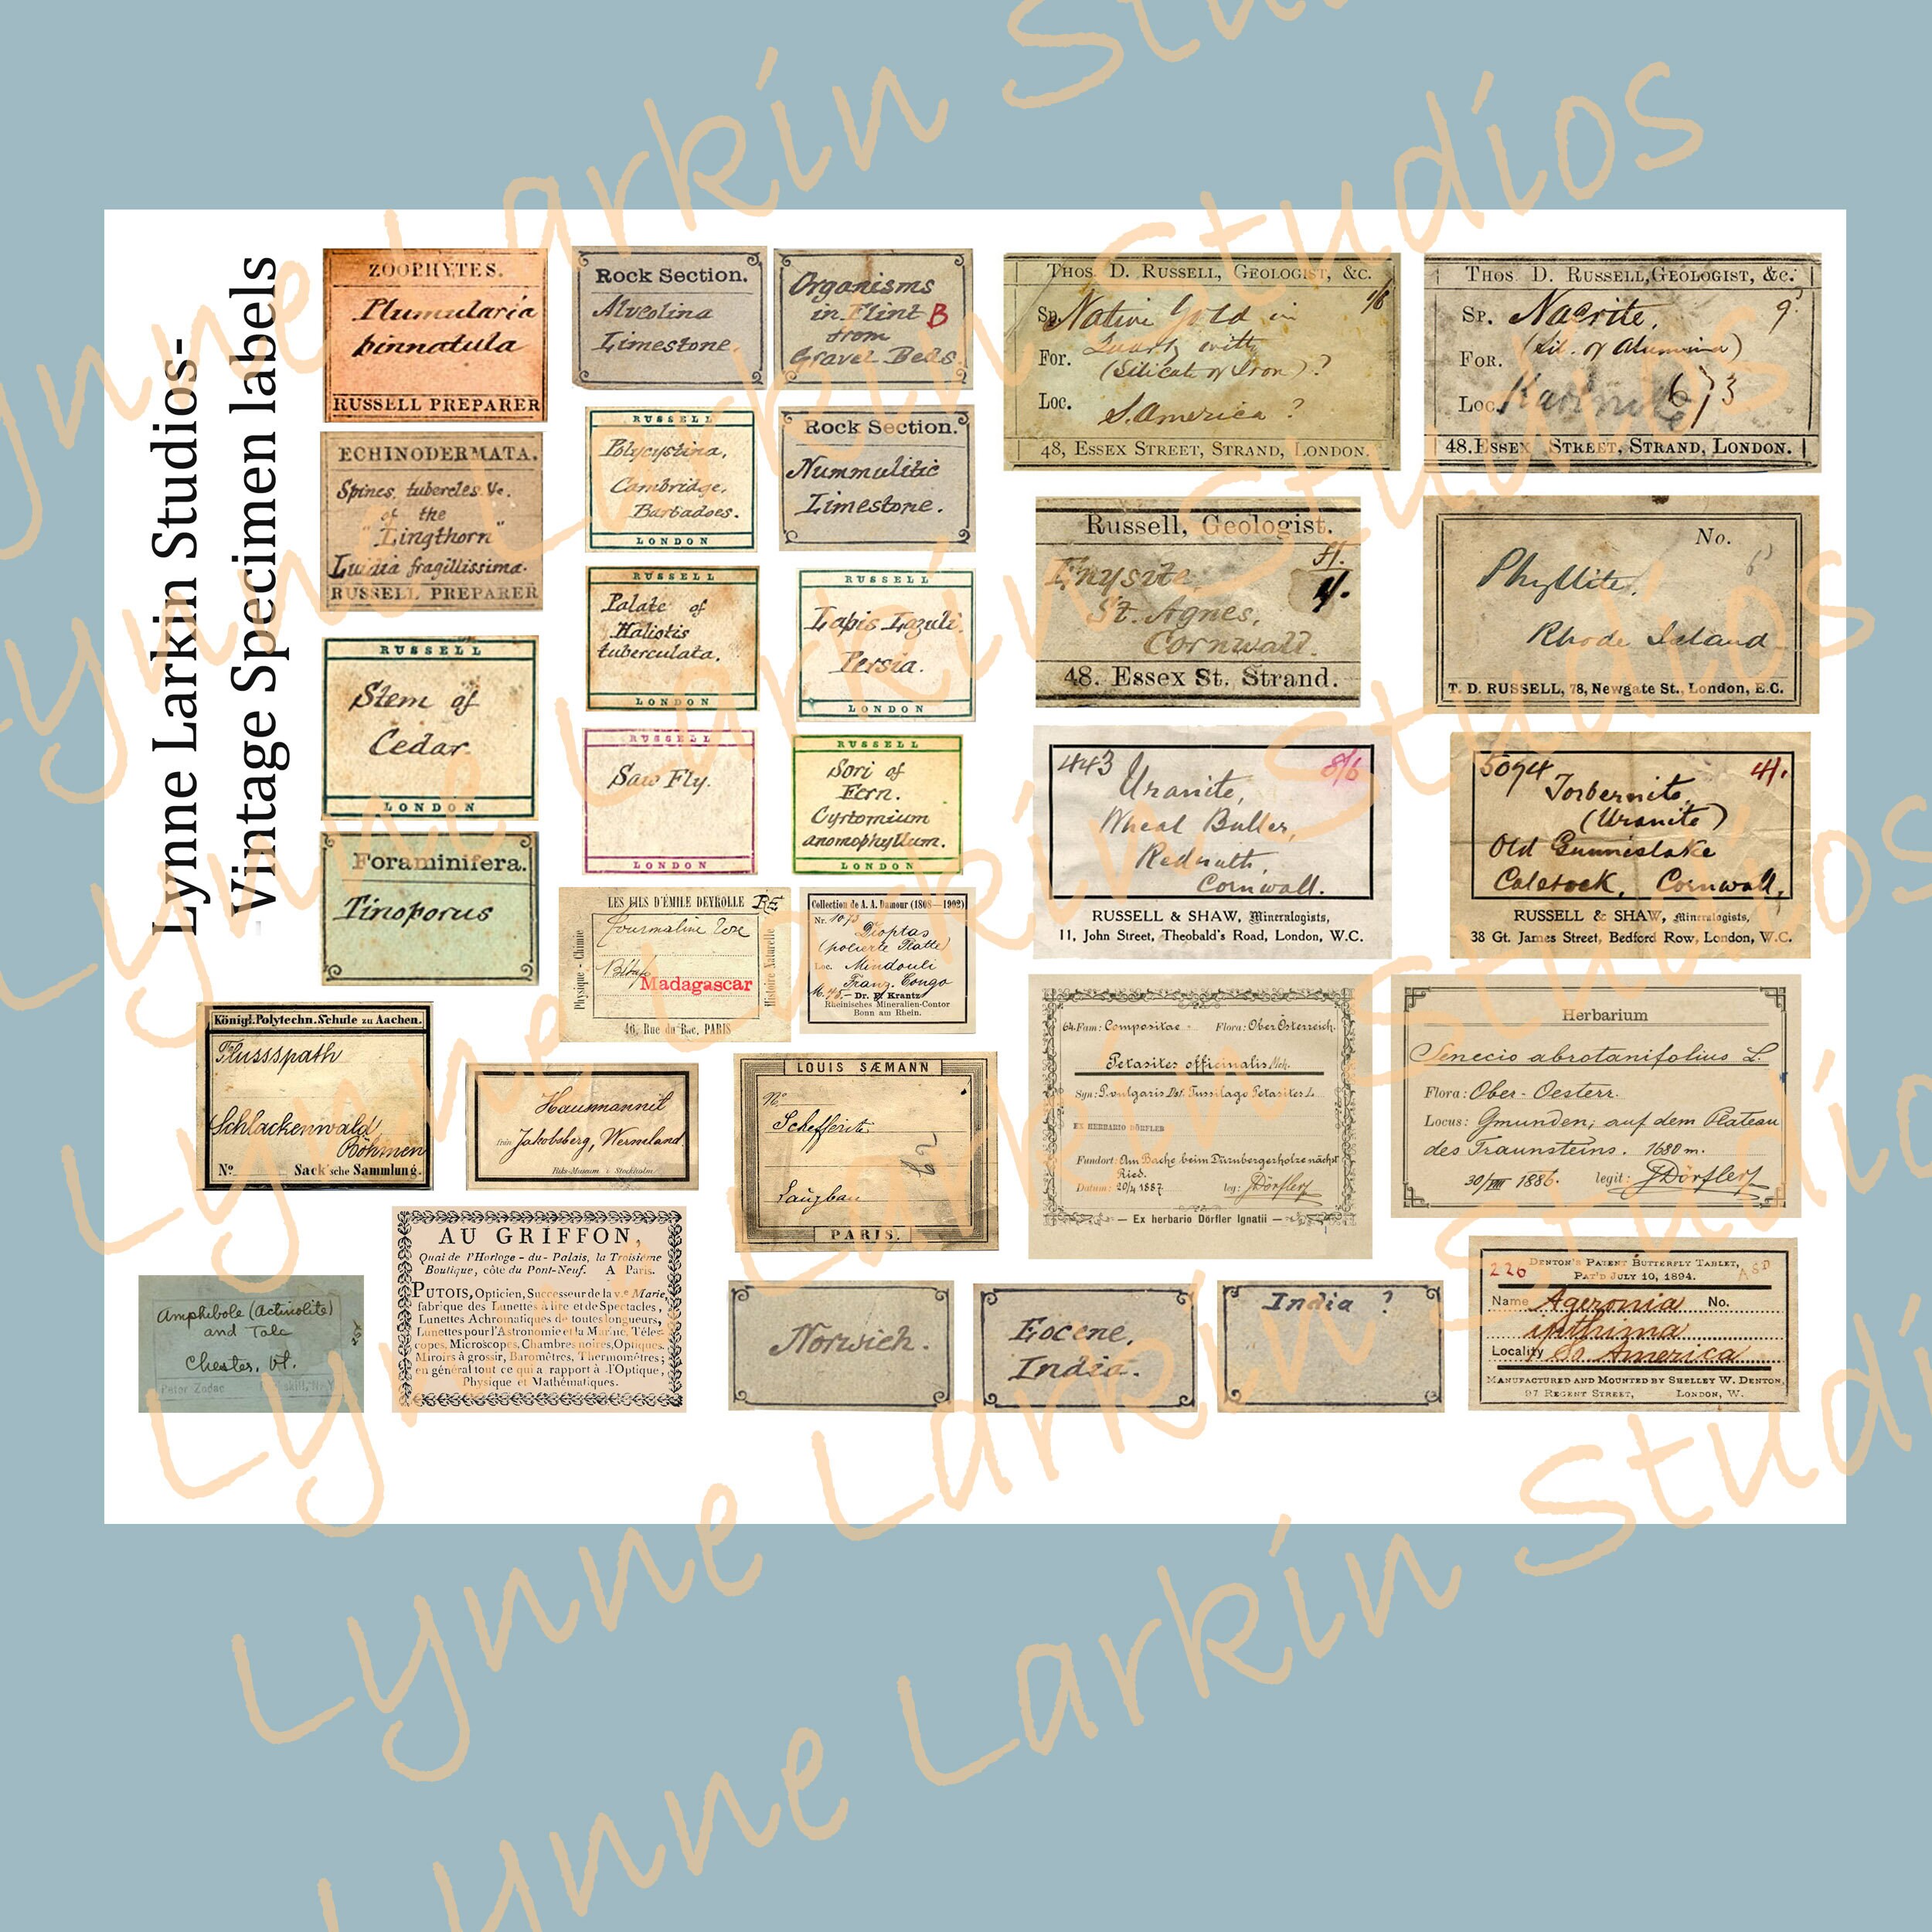 Lynne Larkin Studios-
Vintage Specimen labels
ZOOPHYTES.
Plumularia
pinnatula
RUSSELL PREPARER
ECHINODERMATA.
Spines, tubercles &c.
of the
"Lingthorn"
Luidia fragillissima.
RUSSELL PREPARER
RUSSELL
Stem of
Cedar.
LONDON
Foraminifera.
Tinoporus
Rock Section.
Alveolina
Limestone.
Organisms
in Flint B
from
Gravel Beds.
RUSSELL
Polycystina,
Cambridge,
Barbadoes.
LONDON
Rock Section.
Nummulitic
Limestone.
RUSSELL
Palate of
Haliotis
tuberculata.
LONDON
RUSSELL
Lapis Lazuli.
Persia.
LONDON
RUSSELL
Saw Fly.
LONDON
RUSSELL
Sori of
Fern.
Cyrtomium
anomophyllum.
LONDON
THOS. D. RUSSELL, GEOLOGIST, &C.
Sp. Native Gold in 1/6
For. Quartz with
(Silicate of Iron)?
Loc. S. America ?
48, ESSEX STREET, STRAND, LONDON.
THOS. D. RUSSELL, GEOLOGIST, &c.
SP. Nacrite.
FOR. (Sil. of Alumina)
Loc.
48. ESSEX STREET, STRAND, LONDON.
Russell, Geologist.
St. Agnes,
Cornwall.
48. Essex St. Strand.
No.
Phyllite.
Rhode Island
T. D. RUSSELL, 78, Newgate St., London, E.C.
443 8/6
Uranite,
Wheal Buller,
Redruth,
Cornwall.
RUSSELL & SHAW, Mineralogists,
11, John Street, Theobald's Road, London, W.C.
5094 4/.
Torbernite
(Uranite)
Old Gunnislake
Calstock, Cornwall,
RUSSELL & SHAW, Mineralogists,
38 Gt. James Street, Bedford Row, London, W.C.
LES FILS D'ÉMILE DEYROLLE
Physique - Chimie
Histoire Naturelle
Tourmaline
Madagascar
46, Rue du Bac, PARIS
Collection de A. A. Damour (1808—1902)
Nr. 1073
Dioptas
(polierte Platte)
Loc. Mindouli
Franz. Congo
M. 45.- Dr. F. Krantz
Rheinisches Mineralien-Contor
Bonn am Rhein.
Königl. Polytechn. Schule zu Aachen.
Flussspath
Schlackenwald
Böhmen
No. Sack'sche Sammlung.
Hausmannit
från Jakobsberg, Wermland
Riks-Museum i Stockholm
LOUIS SÆMANN
No
Schefferite
Langban
PARIS.
64. Fam: Compositae Flora: Ober Österreich.
Petasites officinalis Mch.
Syn: P. vulgaris Dsf. Tussilago Petasites L.
EX HERBARIO DÖRFLER
Fundort: Am Bache beim Dürnbergerholze nächst
Ried.
Datum: 20/4 1887. leg: J Dörfler
— Ex herbario Dörfler Ignatii —
Herbarium
Senecio abrotanifolius L.
Flora: Ober-Oesterr.
Locus: Gmunden; auf dem Plateau
des Traunsteins. 1680 m.
30/VIII 1886. legit: J Dörfler
Amphibole (Actinolite)
and Talc
Chester, Vt.
Peter Zodac
AU GRIFFON,
Quai de l'Horloge - du - Palais, la Troisième
Boutique, côté du Pont-Neuf. A Paris.
PUTOIS, Opticien, Successeur de la v.e Marie,
fabrique des Lunettes à lire et de Spectacles,
Lunettes Achromatiques de toutes longueurs,
Lunettes pour l'Astronomie et la Marine, Téles-
copes, Microscopes, Chambres noires, Optiques,
Miroirs à grossir, Baromètres, Thermomètres;
en général tout ce qui a rapport à l'Optique,
Physique et Mathématiques.
Norwich.
Eocene,
India.
India ?
226
DENTON'S PATENT BUTTERFLY TABLET,
PAT'D JULY 10, 1894.
Name Ageronia No.
Locality So. America
MANUFACTURED AND MOUNTED BY SHELLEY W. DENTON,
97 REGENT STREET, LONDON, W.
Lynne Larkin Studios
Lynne Larkin Studios
Lynne Larkin Studios
Lynne Larkin Studios
Lynne Larkin Studios
Lynne Larkin Studios